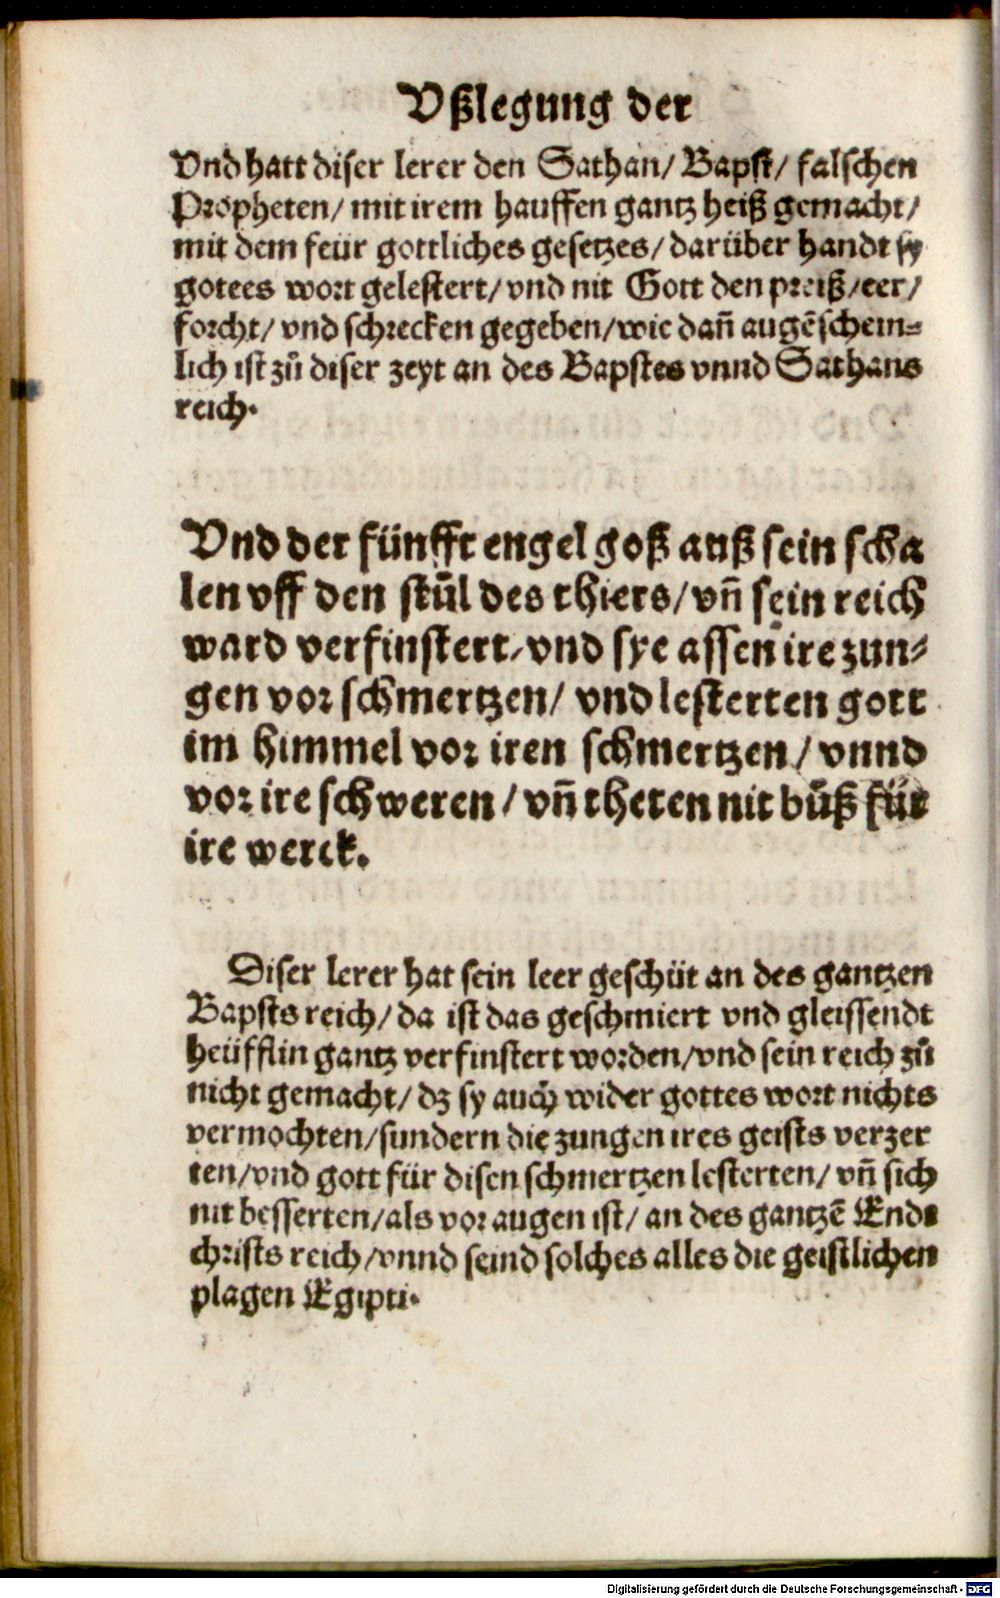 Vßlegung der
Vnd hatt diser lerer den Sathan/ Bapst/ falschen
Propheten/ mit irem hauffen gantz heiß gemacht/
mit dem feür gottliches gesetzes/ darüber handt sy
gotees wort gelestert/ vnd nit Gott den preiß/eer/
forcht/ vnd schrecken gegeben/wie dañ augẽschein⸗
lich ist zů diser zeyt an des Bapstes vnnd Sathans
reich.
Vnd der fünfft engel goß auß sein scha
len vff den stůl des thiers/vñ sein reich
ward verfinstert/vnd sye assen ire zun⸗
gen vor schmertzen/ vnd lesterten gott
im himmel vor iren schmertzen/ vnnd
vor ire schweren/ vñ theten nit bůß für
ire werck.
Diser lerer hat sein leer geschüt an des gantzen
Bapsts reich/ da ist das geschmiert vnd gleissendt
heüfflin gantz verfinstert worden/vnd sein reich zů
nicht gemacht/ dz sy auch wider gottes wort nichts
vermochten/sundern die zungen ires geists verzer
ten/vnd gott für disen schmertzen lesterten/ vñ sich
nit besserten/als vor augen ist/ an des gantzẽ Ende
christs reich/vnnd seind solches alles die geistlichen
plagen Egipti.
Digitalisierung gefördert durch die Deutsche Forschungsgemeinschaft - DFG